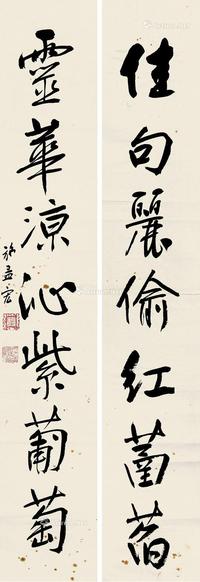 佳句麗偷紅菡萏
靈華涼沁紫葡萄
施孟宏